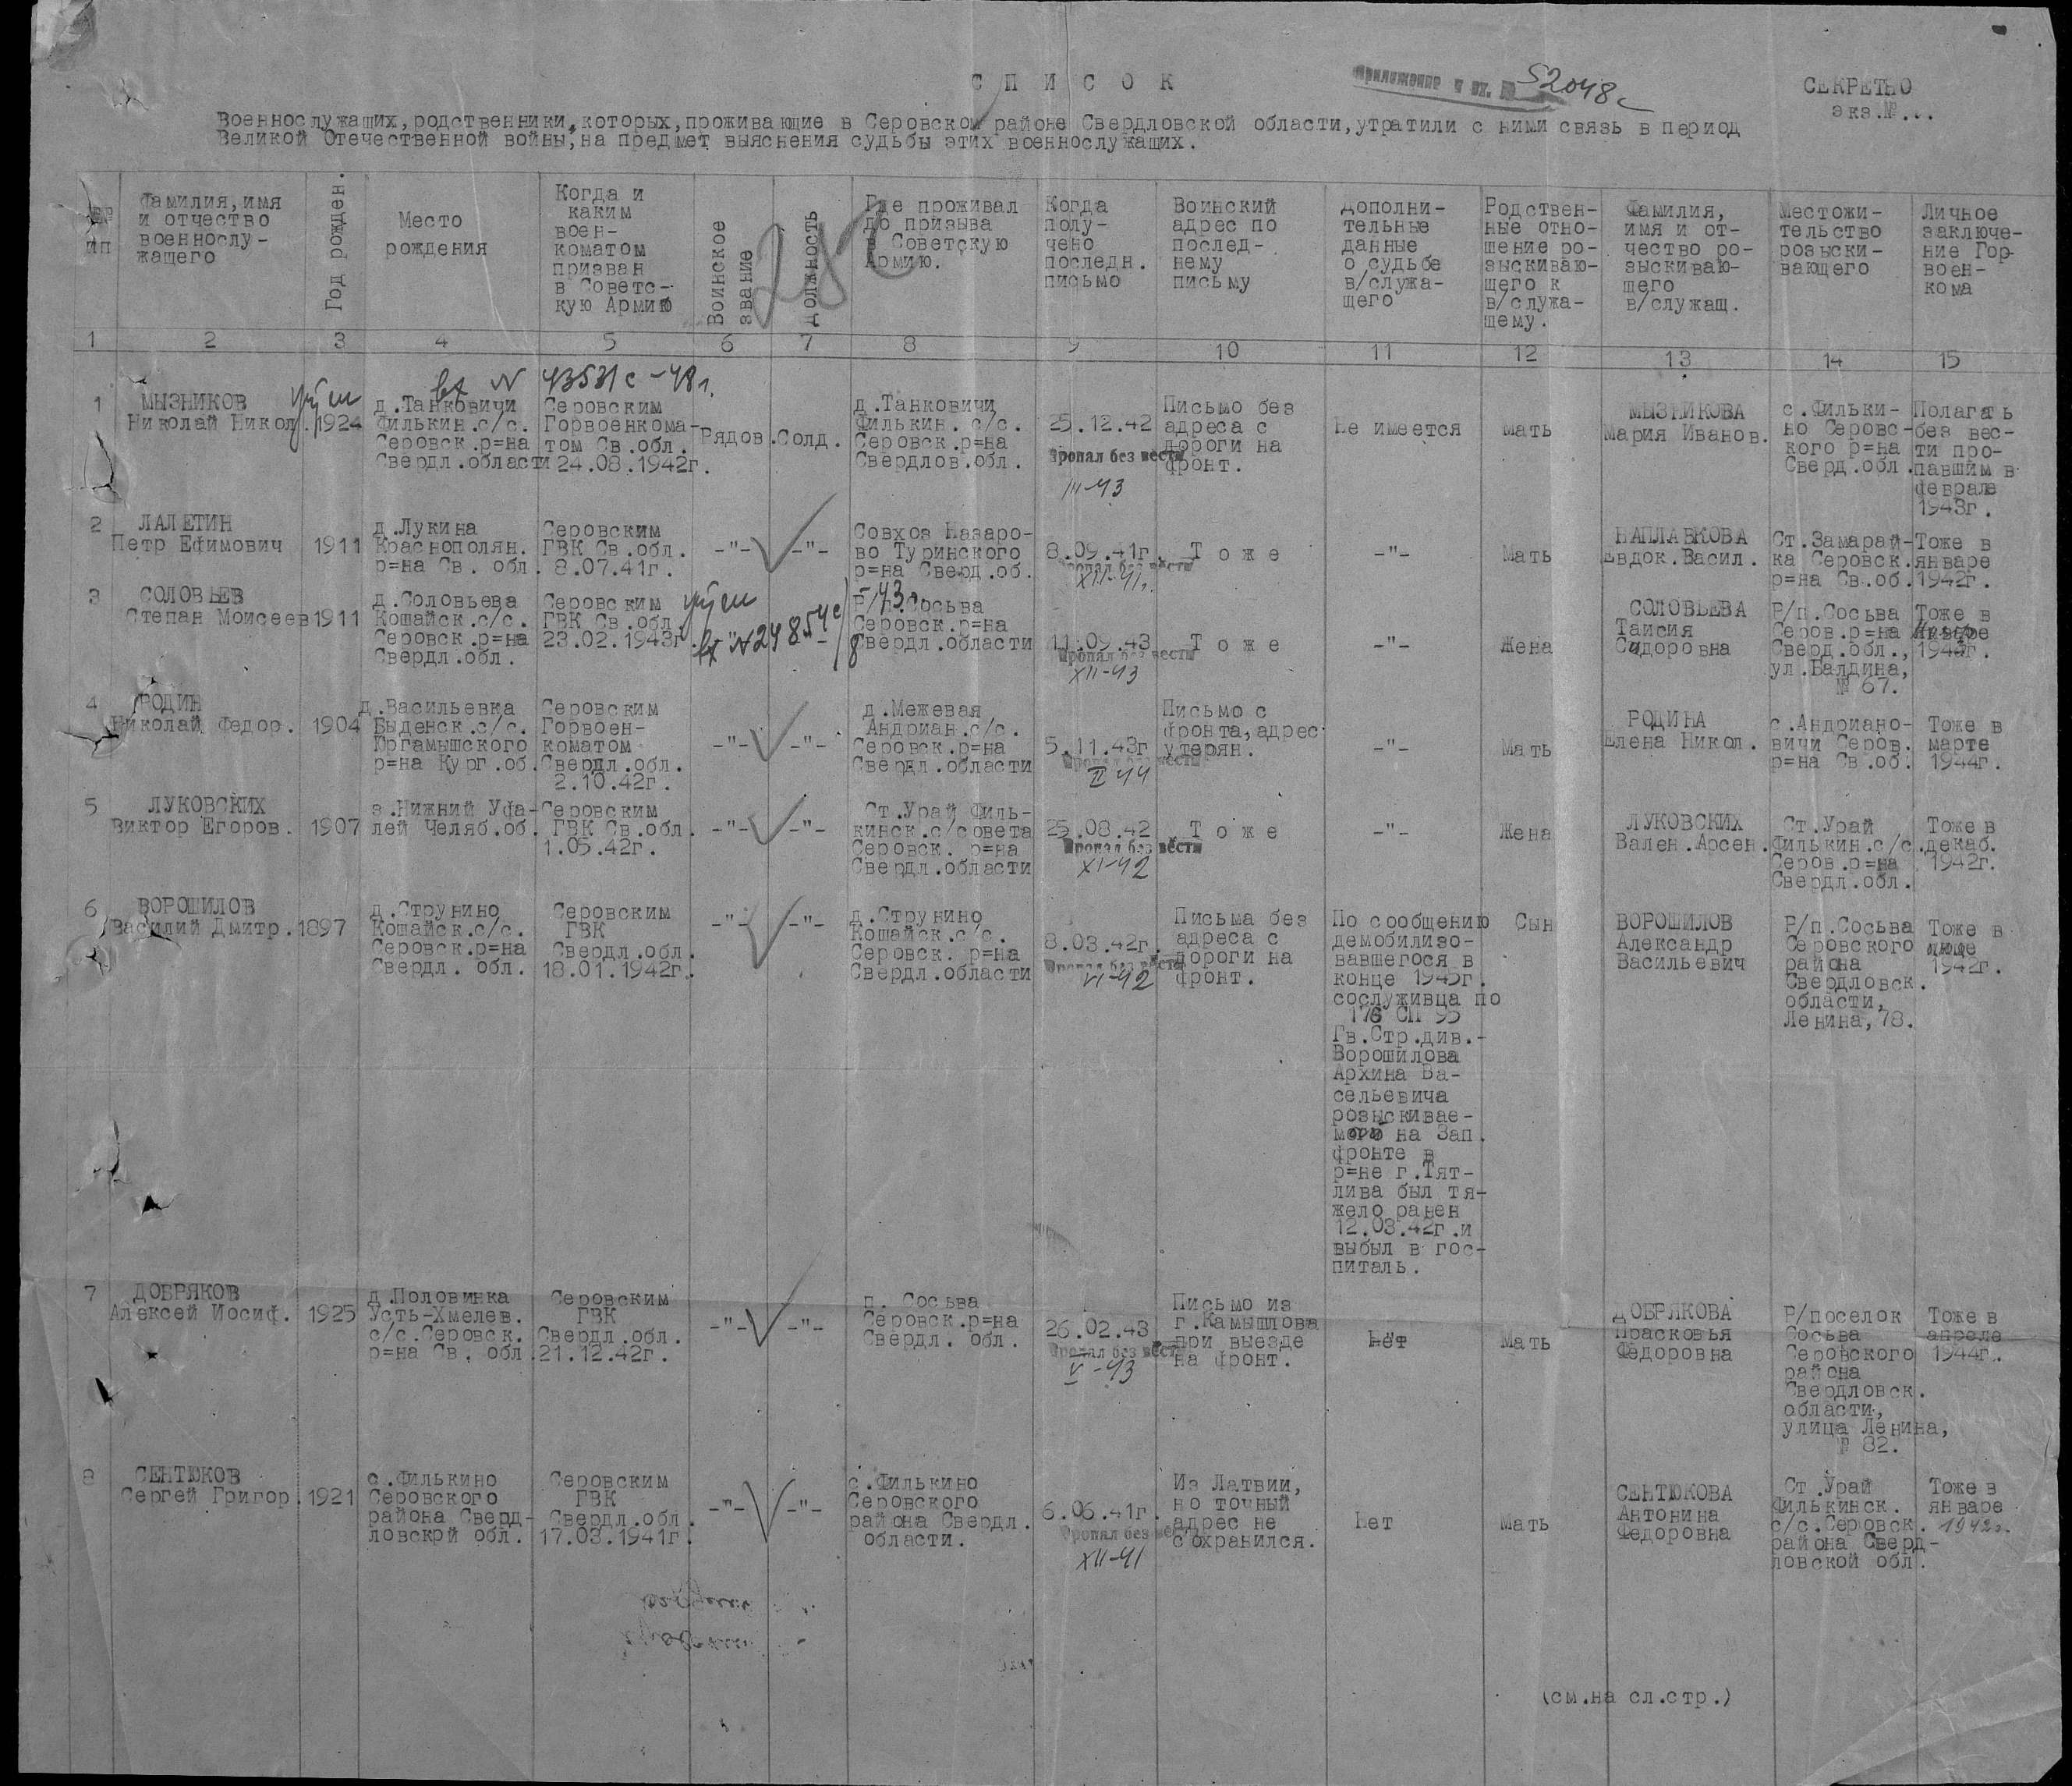 СПИСОК
Приложение к вх. № 52048с
СЕКРЕТНО
экз.№...
Военнослужащих, родственники, которых, проживающие в Серовском районе Свердловской области, утратили с ними связь в период
Великой Отечественной войны, на предмет выяснения судьбы этих военнослужащих.
№№
пп
Фамилия, имя
и отчество
военнослу-
жащего
Год рожден.
Место
рождения
Когда и
каким
воен-
коматом
призван
в Советс-
кую Армию
Воинское
звание
должность
Где проживал
до призыва
в Советскую
Армию.
Когда
полу-
чено
последн.
письмо
Воинский
адрес по
послед-
нему
письму
Дополни-
тельные
данные
о судьбе
в/служа-
щего
Родствен-
ные отно-
шение ро-
зыскиваю-
щего к
в/служа-
щему.
Фамилия,
имя и от-
чество ро-
зыскиваю-
щего
в/служащ.
Местожи-
тельство
розыски-
вающего
Личное
заключе-
ние Гор-
воен-
кома
1 2 3 4 5 6 7 8 9 10 11 12 13 14 15
вх N 43531с-48г.
1
МЫЗНИКОВ
Николай Никол.
1924
д.Танковичи
Филькин.с/с.
Серовск.р=на
Свердл.области
Серовским
Горвоенкома-
том Св.обл.
24.08.1942г.
Рядов.
Солд.
д.Танковичи
Филькин.с/с.
Серовск.р=на
Свердлов.обл.
25.12.42
Пропал без вести
III-43
Письмо без
адреса с
дороги на
фронт.
Не имеется
Мать
МЫЗНИКОВА
Мария Иванов.
с.Фильки-
но Серовс-
кого р=на
Сверд.обл.
Полагать
без вес-
ти про-
павшим в
феврале
1943г.
2
ЛАЛЕТИН
Петр Ефимович
1911
д.Лукина
Краснополян.
р=на Св. обл.
Серовским
ГВК Св.обл.
8.07.41г.
-"-
-"-
Совхоз Назаро-
во Туринского
р=на Сверд.об.
8.09.41г.
Пропал без вести
XII-41г.
Тоже
-"-
Мать
НАПЛАВКОВА
Евдок.Васил.
Ст.Замарай-
ка Серовск.
р=на Св.об.
Тоже в
январе
1942г.
3
СОЛОВЬЕВ
Степан Моисеев
1911
д.Соловьева
Кошайск.с/с.
Серовск.р=на
Свердл.обл.
Серовским
ГВК Св.обл.
23.02.1943г.
вх N 24854с
Р/п.Сосьва
Серовск.р=на
Свердл.области
11.09.43
Пропал без вести
XII-43
Тоже
-"-
Жена
СОЛОВЬЕВА
Таисия
Сидоровна
Р/п.Сосьва
Серов.р=на
Сверд.обл.,
ул.Балдина,
№ 67.
Тоже в
январе
1944г.
4
РОДИН
Николай Федор.
1904
д.Васильевка
Быденск.с/с.
Юргамышского
р=на Кург.об.
Серовским
Горвоен-
коматом
Свердл.обл.
2.10.42г.
-"-
-"-
д.Межевая
Андриан.с/с.
Серовск.р=на
Свердл.области
5.11.43г
Пропал без вести
II 44
Письмо с
фронта, адрес
утерян.
-"-
Мать
РОДИНА
Елена Никол.
с.Андриано-
вичи Серов.
р=на Св.об.
Тоже в
марте
1944г.
5
ЛУКОВСКИХ
Виктор Егоров.
1907
з.Нижний Уфа-
лей Челяб.об.
Серовским
ГВК Св.обл.
1.05.42г.
-"-
-"-
Ст.Урай Филь-
кинск.с/совета
Серовск. р=на
Свердл.области
25.08.42
Пропал без вести
XI-42
Тоже
-"-
Жена
ЛУКОВСКИХ
Вален.Арсен.
Ст.Урай
Филькин.с/с.
Серов.р=на
Свердл.обл.
Тоже в
декаб.
1942г.
6
ВОРОШИЛОВ
Василий Дмитр.
1897
д.Струнино
Кошайск.с/с.
Серовск.р=на
Свердл. обл.
Серовским
ГВК
Свердл.обл.
18.01.1942г.
-"-
-"-
д.Струнино
Кошайск.с/с.
Серовск. р=на
Свердл.области
8.03.42г.
Пропал без вести
VI-42
Письма без
адреса с
дороги на
фронт.
По сообщению
демобилизо-
вавшегося в
конце 1945г.
сослуживца по
176 СП 95
Гв.Стр.див.-
Ворошилова
Архипа Ва-
сельевича
розыскивае-
мого на Зап.
фронте в
р=не г.Тят-
лива был тя-
жело ранен
12.03.42г.и
выбыл в гос-
питаль.
Сын
ВОРОШИЛОВ
Александр
Васильевич
Р/п.Сосьва
Серовского
района
Свердловск.
области,
Ленина,78.
Тоже в
1942г.
7
ДОБРЯКОВ
Алексей Иосиф.
1925
д.Половинка
Усть-Хмелев.
с/с.Серовск.
р=на Св. обл.
Серовским
ГВК
Свердл.обл.
21.12.42г.
-"-
-"-
п. Сосьва
Серовск.р=на
Свердл. обл.
26.02.43
Пропал без вести
V-43
Письмо из
г.Камышлова
при выезде
на фронт.
Нет
Мать
ДОБРЯКОВА
Прасковья
Федоровна
Р/поселок
Сосьва
Серовского
района
Свердловск.
области,
улица Ленина,
№ 82.
Тоже в
апреле
1944г.
8
СЕНТЮКОВ
Сергей Григор.
1921
с.Филькино
Серовского
района Сверд-
ловской обл.
Серовским
ГВК
Свердл.обл.
17.03.1941г.
-"-
-"-
с.Филькино
Серовского
района Свердл.
области.
6.06.41г.
Пропал без вести
XII-41
Из Латвии,
но точный
адрес не
сохранился.
Нет
Мать
СЕНТЮКОВА
Антонина
Федоровна
Ст.Урай
Филькинск.
с/с.Серовск.
района Сверд-
ловской обл.
Тоже в
январе
1942г.
(см.на сл.стр.)